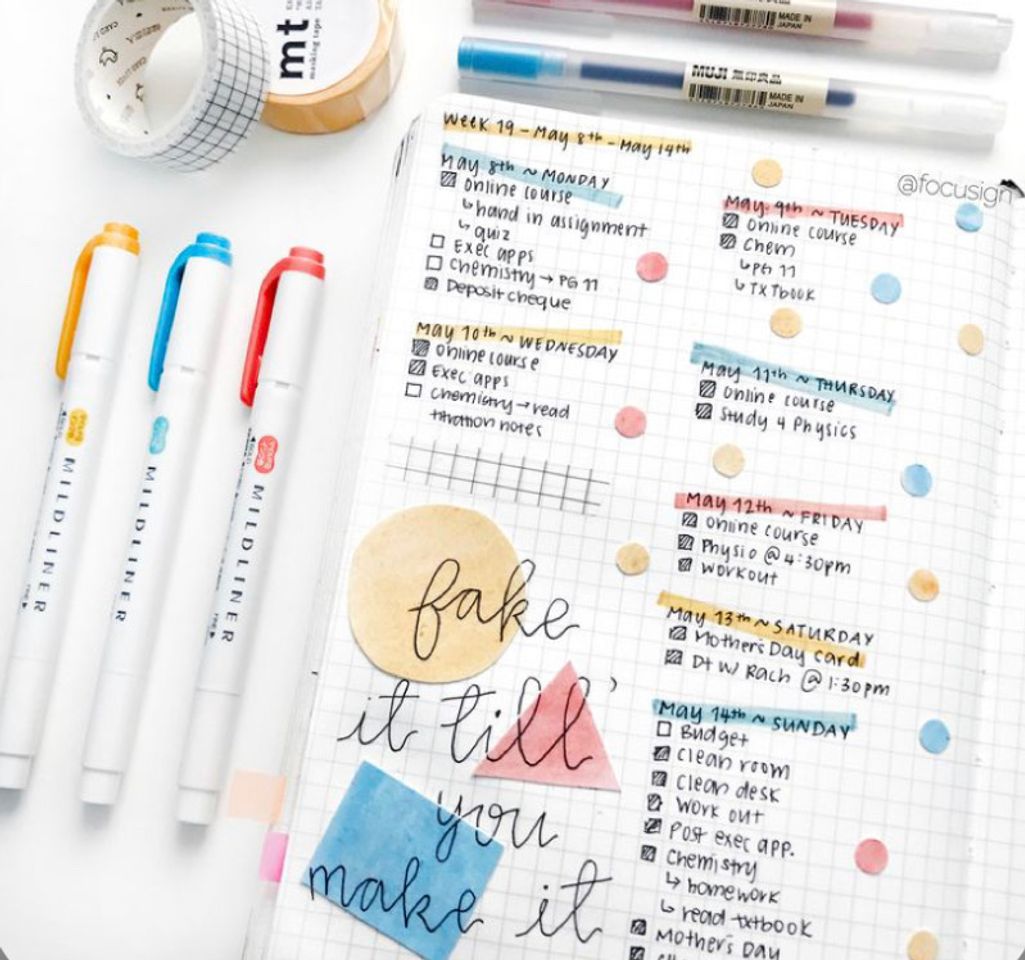 mt
masking tape
MADE IN
JAPAN
MUJI 無印良品
MADE IN
JAPAN
@focusign
MILDLINER
MILDLINER
MILDLINER
Week 19 - May 8th - May 14th
May 8th ~ MONDAY
Online course
↳ hand in assignment
↳ quiz
Exec apps
Chemistry → PG 11
Deposit cheque
May 9th ~ TUESDAY
Online course
Chem
↳ PG 11
↳ TXTbook
May 10th ~ WEDNESDAY
Online course
Exec apps
Chemistry → read
titration notes
May 11th ~ THURSDAY
Online course
Study 4 Physics
May 12th ~ FRIDAY
Online course
Physio @ 4:30pm
Workout
May 13th ~ SATURDAY
Mother's Day card
Dt w/ Rach @ 1:30pm
May 14th ~ SUNDAY
Budget
Clean room
Clean desk
Work out
Post exec app.
Chemistry
↳ homework
↳ read txtbook
Mother's Day
fake
it till'
you
make it